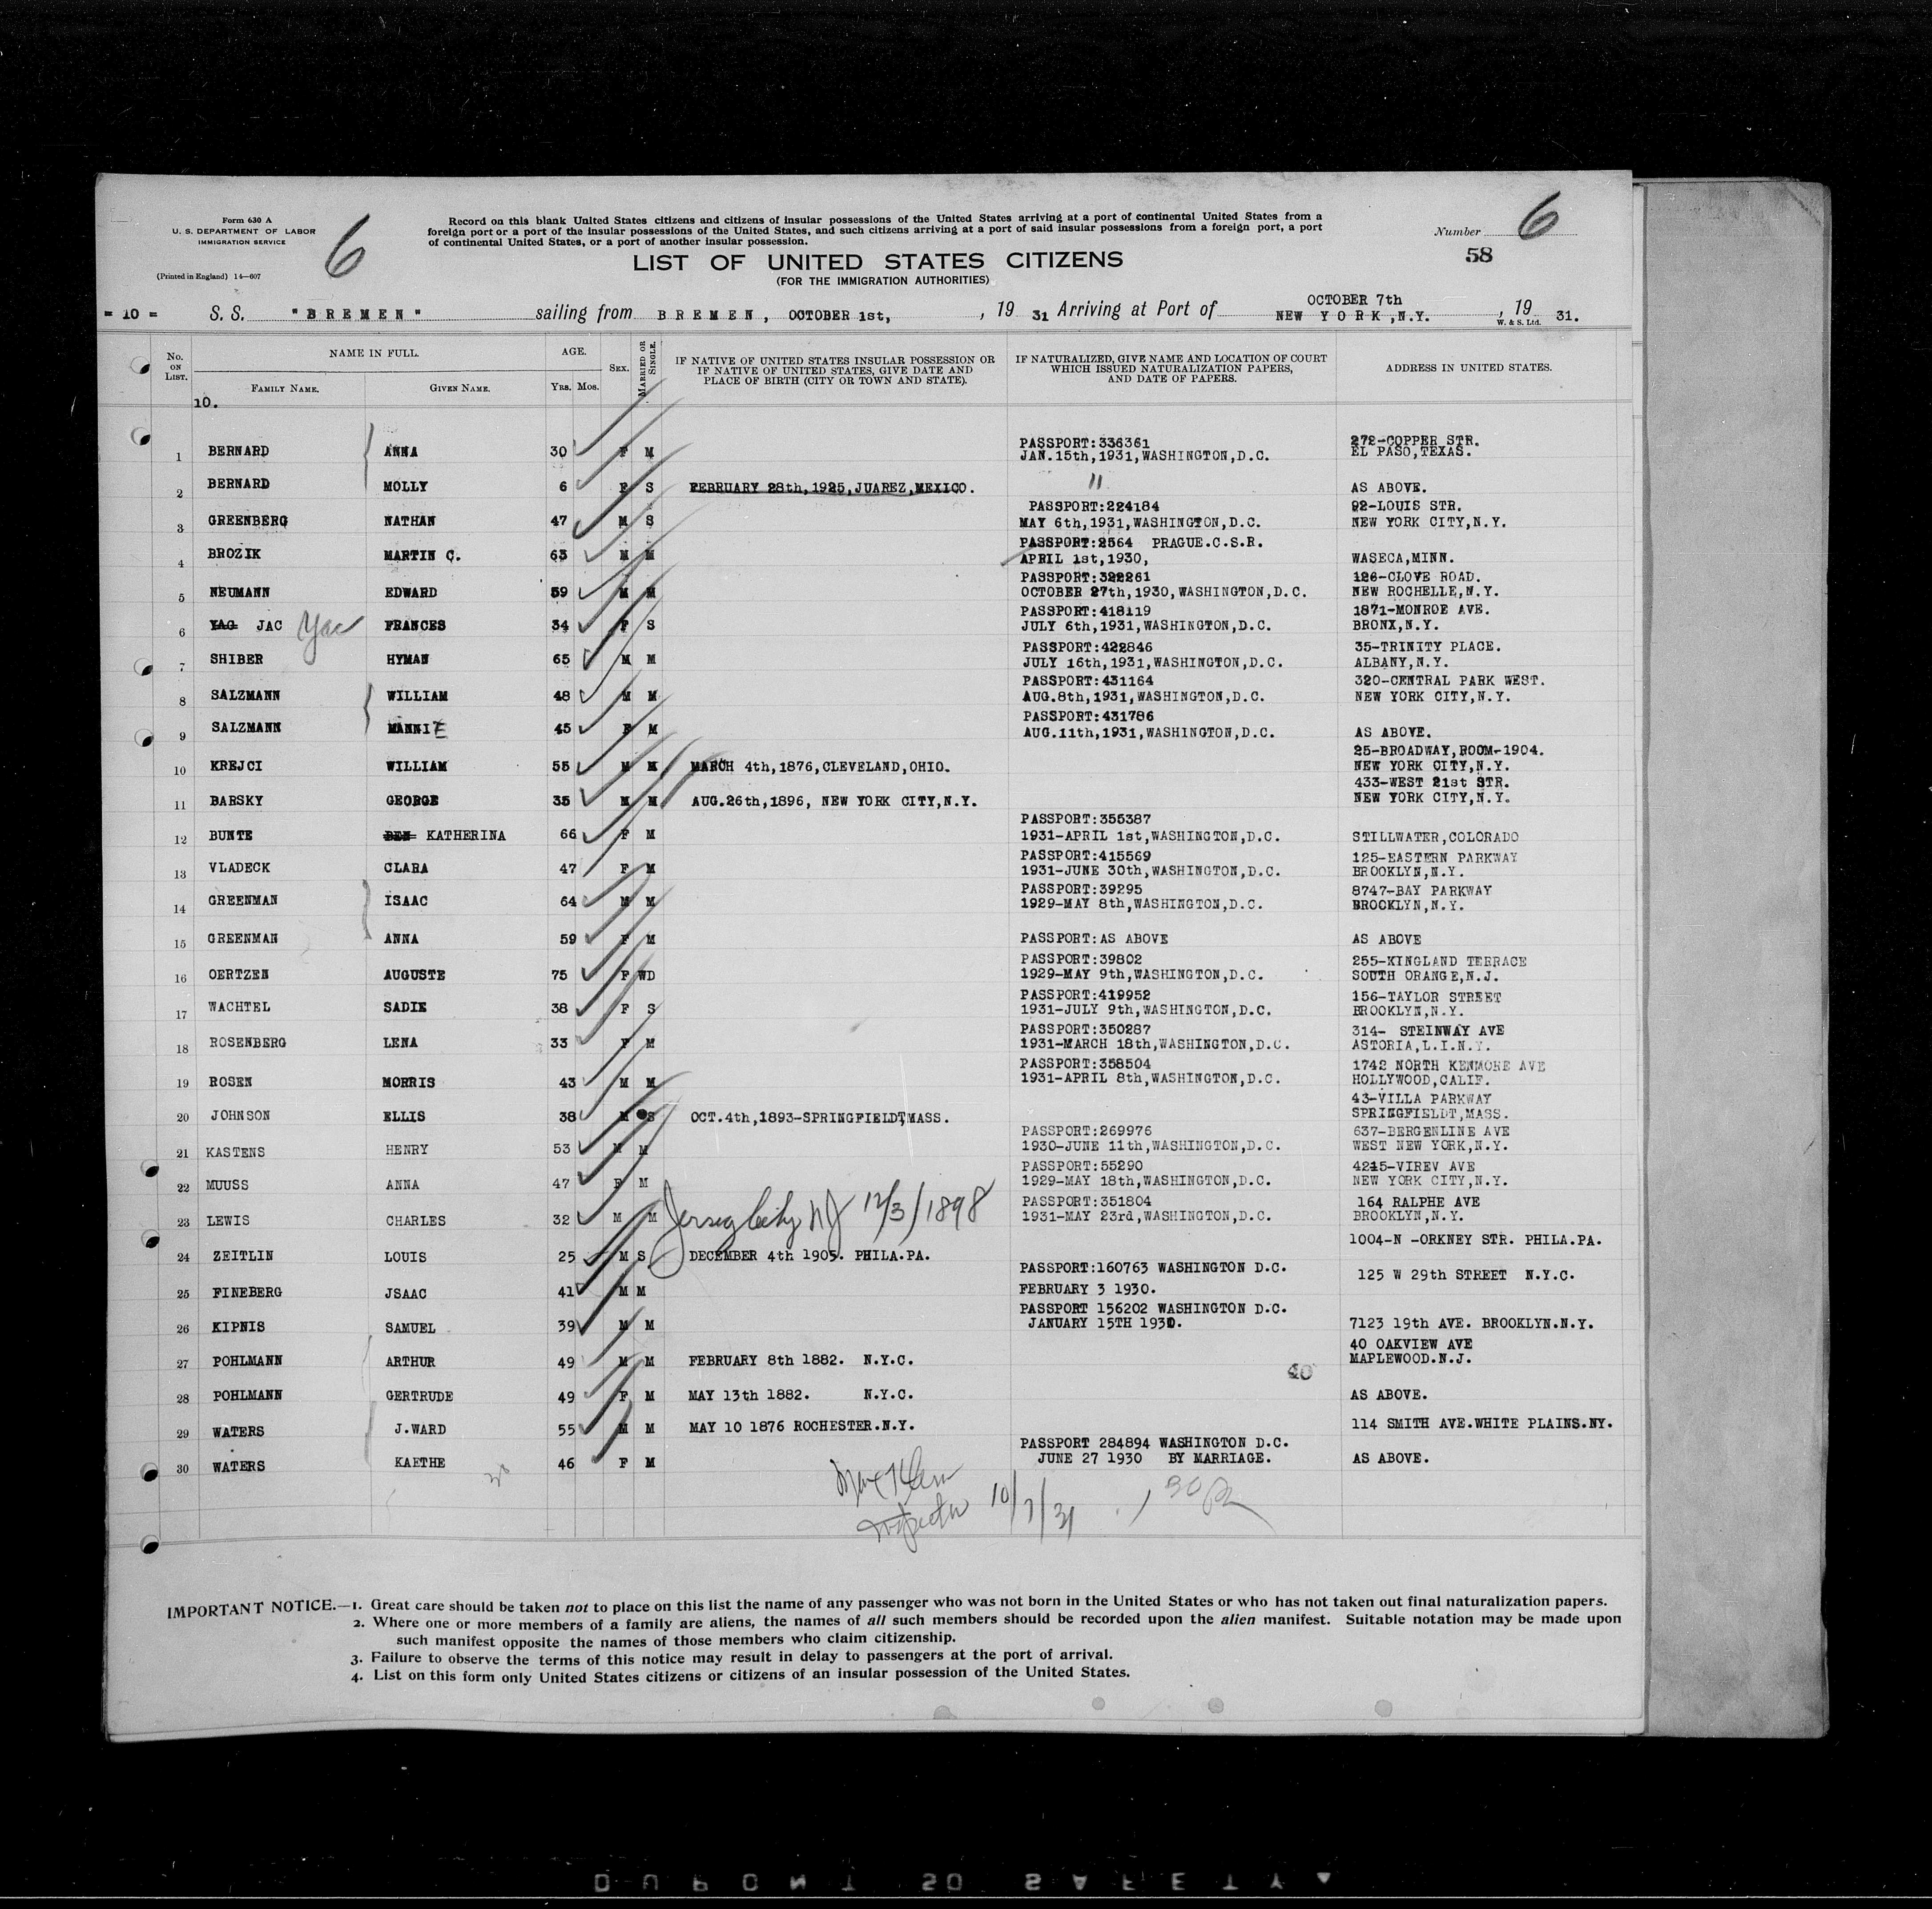 Form 630 A
U. S. DEPARTMENT OF LABOR
IMMIGRATION SERVICE
(Printed in England) 14—607
6
Record on this blank United States citizens and citizens of insular possessions of the United States arriving at a port of continental United States from a
foreign port or a port of the insular possessions of the United States, and such citizens arriving at a port of said insular possessions from a foreign port, a port
of continental United States, or a port of another insular possession.
Number 6
58
LIST OF UNITED STATES CITIZENS
(FOR THE IMMIGRATION AUTHORITIES)
= 10 = S. S. "BREMEN" sailing from BREMEN, OCTOBER 1st, , 19 31 Arriving at Port of OCTOBER 7th NEW YORK,N.Y. , 19 31.
W. & S. Ltd.
No. ON LIST. NAME IN FULL. FAMILY NAME. GIVEN NAME. AGE. Yrs. Mos. SEX. MARRIED OR SINGLE. IF NATIVE OF UNITED STATES INSULAR POSSESSION OR IF NATIVE OF UNITED STATES, GIVE DATE AND PLACE OF BIRTH (CITY OR TOWN AND STATE). IF NATURALIZED, GIVE NAME AND LOCATION OF COURT WHICH ISSUED NATURALIZATION PAPERS, AND DATE OF PAPERS. ADDRESS IN UNITED STATES.
10.
1 BERNARD ANNA 30 F M PASSPORT:336361 JAN.15th,1931,WASHINGTON,D.C. 272-COPPER STR. EL PASO,TEXAS.
2 BERNARD MOLLY 6 F S FEBRUARY 28th,1925,JUAREZ,MEXICO. " AS ABOVE.
3 GREENBERG NATHAN 47 M S PASSPORT:224184 MAY 6th,1931,WASHINGTON,D.C. 92-LOUIS STR. NEW YORK CITY,N.Y.
4 BROZIK MARTIN C. 63 M M PASSPORT:2564 PRAGUE.C.S.R. APRIL 1st,1930, WASECA,MINN.
5 NEUMANN EDWARD 59 M M PASSPORT:322261 OCTOBER 27th,1930,WASHINGTON,D.C. 126-CLOVE ROAD. NEW ROCHELLE,N.Y.
6 YAG JAC Yac FRANCES 34 F S PASSPORT:418119 JULY 6th,1931,WASHINGTON,D.C. 1871-MONROE AVE. BRONX,N.Y.
7 SHIBER HYMAN 65 M M PASSPORT:422846 JULY 16th,1931,WASHINGTON,D.C. 35-TRINITY PLACE. ALBANY,N.Y.
8 SALZMANN WILLIAM 48 M M PASSPORT:431164 AUG.8th,1931,WASHINGTON,D.C. 320-CENTRAL PARK WEST. NEW YORK CITY,N.Y.
9 SALZMANN MANNIE 45 F M PASSPORT:431786 AUG.11th,1931,WASHINGTON,D.C. AS ABOVE.
10 KREJCI WILLIAM 55 M M MARCH 4th,1876,CLEVELAND,OHIO. 25-BROADWAY,ROOM-1904. NEW YORK CITY,N.Y.
11 BARSKY GEORGE 35 M M AUG.26th,1896, NEW YORK CITY,N.Y. 433-WEST 21st STR. NEW YORK CITY,N.Y.
12 BUNTE BEN KATHERINA 66 F M PASSPORT:355387 1931-APRIL 1st,WASHINGTON,D.C. STILLWATER,COLORADO
13 VLADECK CLARA 47 F M PASSPORT:415569 1931-JUNE 30th,WASHINGTON,D.C. 125-EASTERN PARKWAY BROOKLYN,N.Y.
14 GREENMAN ISAAC 64 M M PASSPORT:39295 1929-MAY 8th,WASHINGTON,D.C. 8747-BAY PARKWAY BROOKLYN,N.Y.
15 GREENMAN ANNA 59 F M PASSPORT:AS ABOVE AS ABOVE
16 OERTZEN AUGUSTE 75 F WD PASSPORT:39802 1929-MAY 9th,WASHINGTON,D.C. 255-KINGLAND TERRACE SOUTH ORANGE,N.J.
17 WACHTEL SADIE 38 F S PASSPORT:419952 1931-JULY 9th,WASHINGTON,D.C. 156-TAYLOR STREET BROOKLYN,N.Y.
18 ROSENBERG LENA 33 F M PASSPORT:350287 1931-MARCH 18th,WASHINGTON,D.C. 314- STEINWAY AVE ASTORIA,L.I.N.Y.
19 ROSEN MORRIS 43 M M PASSPORT:358504 1931-APRIL 8th,WASHINGTON,D.C. 1742 NORTH KENMORE AVE HOLLYWOOD,CALIF.
20 JOHNSON ELLIS 38 M S OCT.4th,1893-SPRINGFIELDT,MASS. 43-VILLA PARKWAY SPRINGFIELDT,MASS.
21 KASTENS HENRY 53 M M PASSPORT:269976 1930-JUNE 11th,WASHINGTON,D.C. 637-BERGENLINE AVE WEST NEW YORK,N.Y.
22 MUUSS ANNA 47 F M PASSPORT:55290 1929-MAY 18th,WASHINGTON,D.C. 4215-VIREV AVE NEW YORK CITY,N.Y.
23 LEWIS CHARLES 32 M M Jersey City NJ 12/3/1898 PASSPORT:351804 1931-MAY 23rd,WASHINGTON,D.C. 164 RALPHE AVE BROOKLYN,N.Y.
24 ZEITLIN LOUIS 25 M S DECEMBER 4th 1905. PHILA.PA. 1004-N -ORKNEY STR. PHILA.PA.
25 FINEBERG JSAAC 41 M M PASSPORT:160763 WASHINGTON D.C. FEBRUARY 3 1930. 125 W 29th STREET N.Y.C.
26 KIPNIS SAMUEL 39 M M PASSPORT 156202 WASHINGTON D.C. JANUARY 15TH 1930. 7123 19th AVE. BROOKLYN.N.Y.
27 POHLMANN ARTHUR 49 M M FEBRUARY 8th 1882. N.Y.C. 40 OAKVIEW AVE MAPLEWOOD.N.J.
40
28 POHLMANN GERTRUDE 49 F M MAY 13th 1882. N.Y.C. AS ABOVE.
29 WATERS J.WARD 55 M M MAY 10 1876 ROCHESTER.N.Y. 114 SMITH AVE.WHITE PLAINS.NY.
30 WATERS KAETHE 46 F M PASSPORT 284894 WASHINGTON D.C. JUNE 27 1930 BY MARRIAGE. AS ABOVE.
Inspector 10/7/31
IMPORTANT NOTICE.—1. Great care should be taken not to place on this list the name of any passenger who was not born in the United States or who has not taken out final naturalization papers.
2. Where one or more members of a family are aliens, the names of all such members should be recorded upon the alien manifest. Suitable notation may be made upon
such manifest opposite the names of those members who claim citizenship.
3. Failure to observe the terms of this notice may result in delay to passengers at the port of arrival.
4. List on this form only United States citizens or citizens of an insular possession of the United States.
DUPONT SO SAFETY